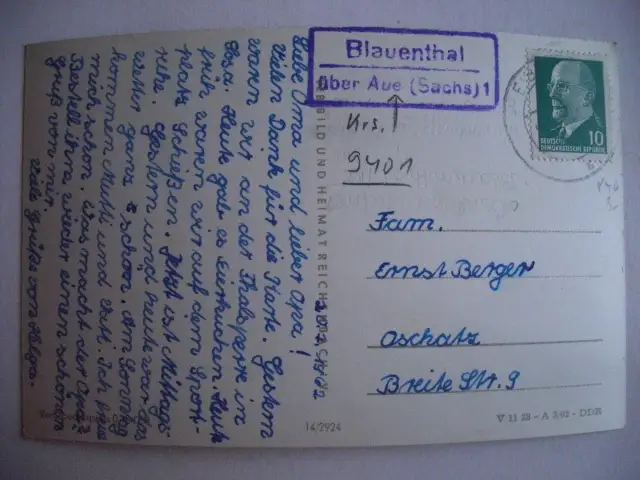 Blauenthal
über Aue (Sachs) 1
Krs.
9401
DEUTSCHE
DEMOKRATISCHE REPUBLIK
10
Fam.
Ernst Berger
Oschatz
Breite Str. 9
Liebe Oma und lieber Opa!
Vielen Dank für die Karte. Gestern
waren wir an der Thalsperre in
Sosa. Heute gab es Eierkuchen. Heute
früh waren wir auf dem Sport-
platz Schießen. Jetzt ist Mittags-
ruhe. Gestern und heute war das
Wetter ganz schön. Am Sonntag
kommen Mutti und Vati. Ich freue
mich schon. Was macht der Opa?
Bestell ihm wieder einen schönen
Gruß von mir.
Viele Grüße von Helga.
BILD UND HEIMAT REICHENBACH
14/2924
V 11 28 - A 3/62 - DDR